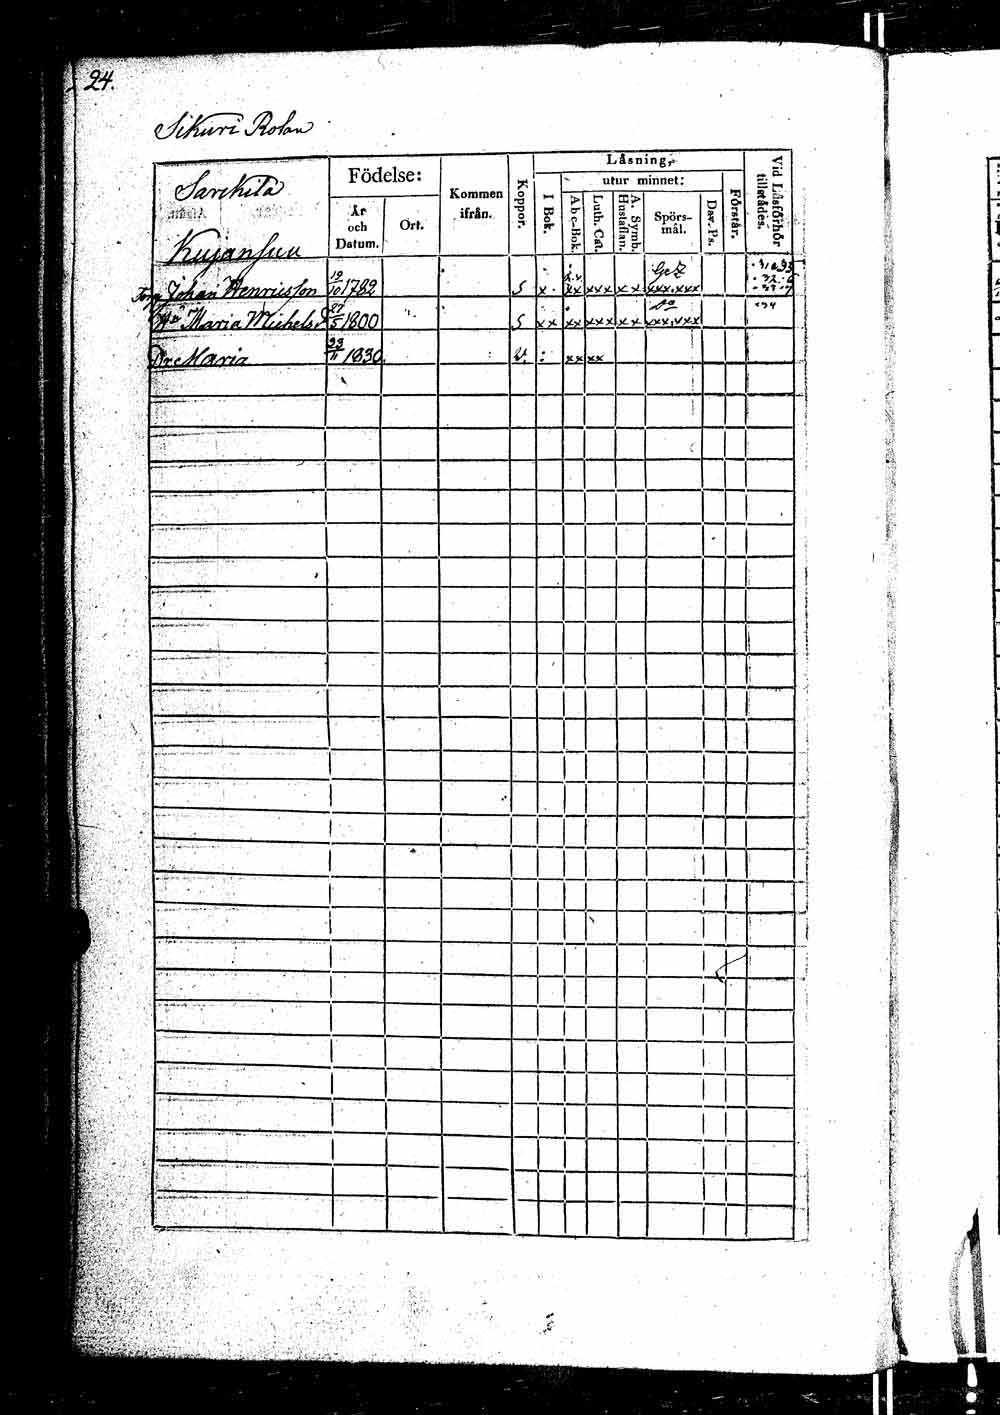 24.
Sikuri Rotan
Sarckila
Kujansuu
Födelse:
År och Datum.
Ort.
Kommen ifrån.
Koppor.
Läsning,
I Bok.
utur minnet:
Abc-Bok.
Luth. Cat.
A. Symb. Hustaflan.
Spörs-mål.
Dav. Ps.
Förstår.
Vid Läsförhör tillstädes.
Torp Johan Henricsson 19/10 1782 S x . xx xxx x x xxx.xxx
Maria Michels 27/5 1800 S x x xx xxx x x xxx,xxx 34
Dr Maria 23/11 1830. V. : xx xx